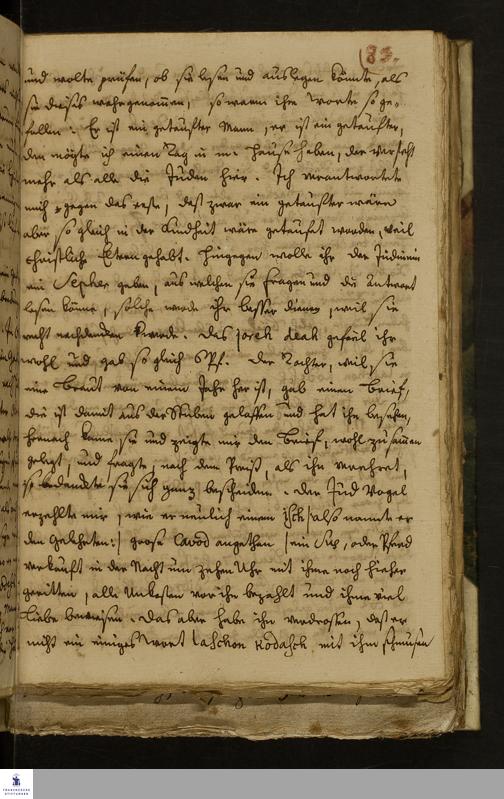 83.
und wolte prüfen, ob sie lesen und auslegen könte, als
sie dieses wahrgenommen, so waren ihre Worte so ge-
fallen: Er ist ein getaufter Mann, er ist ein getaufter,
den mögte ich einen Tag in m. Hause haben, der versteht
mehr als alle die Juden hier. Ich verantwortete
mich gegen das erste, daß zwar ein getaufter wäre
aber so gleich in der Kindheit wäre getauft worden, weil
christliche Eltern gehabt. Hingegen wolle ihr der Jüdinn
ein Sepher geben, aus welchem sie fragen und die Antwort
lesen könne, solches werde ihr besser dienen, weil sie
recht nachdencken werde. Das joreh deah gefiel ihr
wohl und gab so gleich 8 Pf. Der Tochter, weil sie
eine Braut von einem Jahr her ist, gab einen Brief,
die ist damit aus der Stuben gelassen und hat ihn besehen,
hernach kam sie und zeigte mir den Brief, wohl zusammen
gelegt, und fragte, nach dem Preiß, als ihn verehret,
so bedanckte sie sich ganz bescheiden. Der Jud Vogel
erzehlte mir, wie er neulich einem isch |: also nannte er
den Gelehrten :| große Cavod angethan
verkauft in der Nacht um zehen Uhr mit ihme noch hieher
geritten, alle Unkosten vor ihn bezahlt und ihme viel
Liebe bewiesen. Das aber habe ihn verdrossen, daß er
nicht ein einiges Wort laschon kodasch mit ihm schmusen
FRANCKESCHE STIFTUNGEN